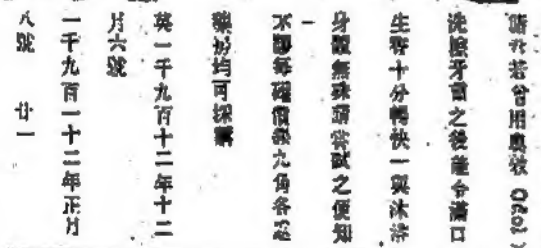 諸君若曾用奧
洗擦牙齒之後能令滿口
生香十分暢快一與沐浴
身體無殊請嘗試之便知
不謬每罐價銀九角各
藥房均可採購
英一千九百十二年十二
月六號
一千九百一十二年正月
八號 廿一